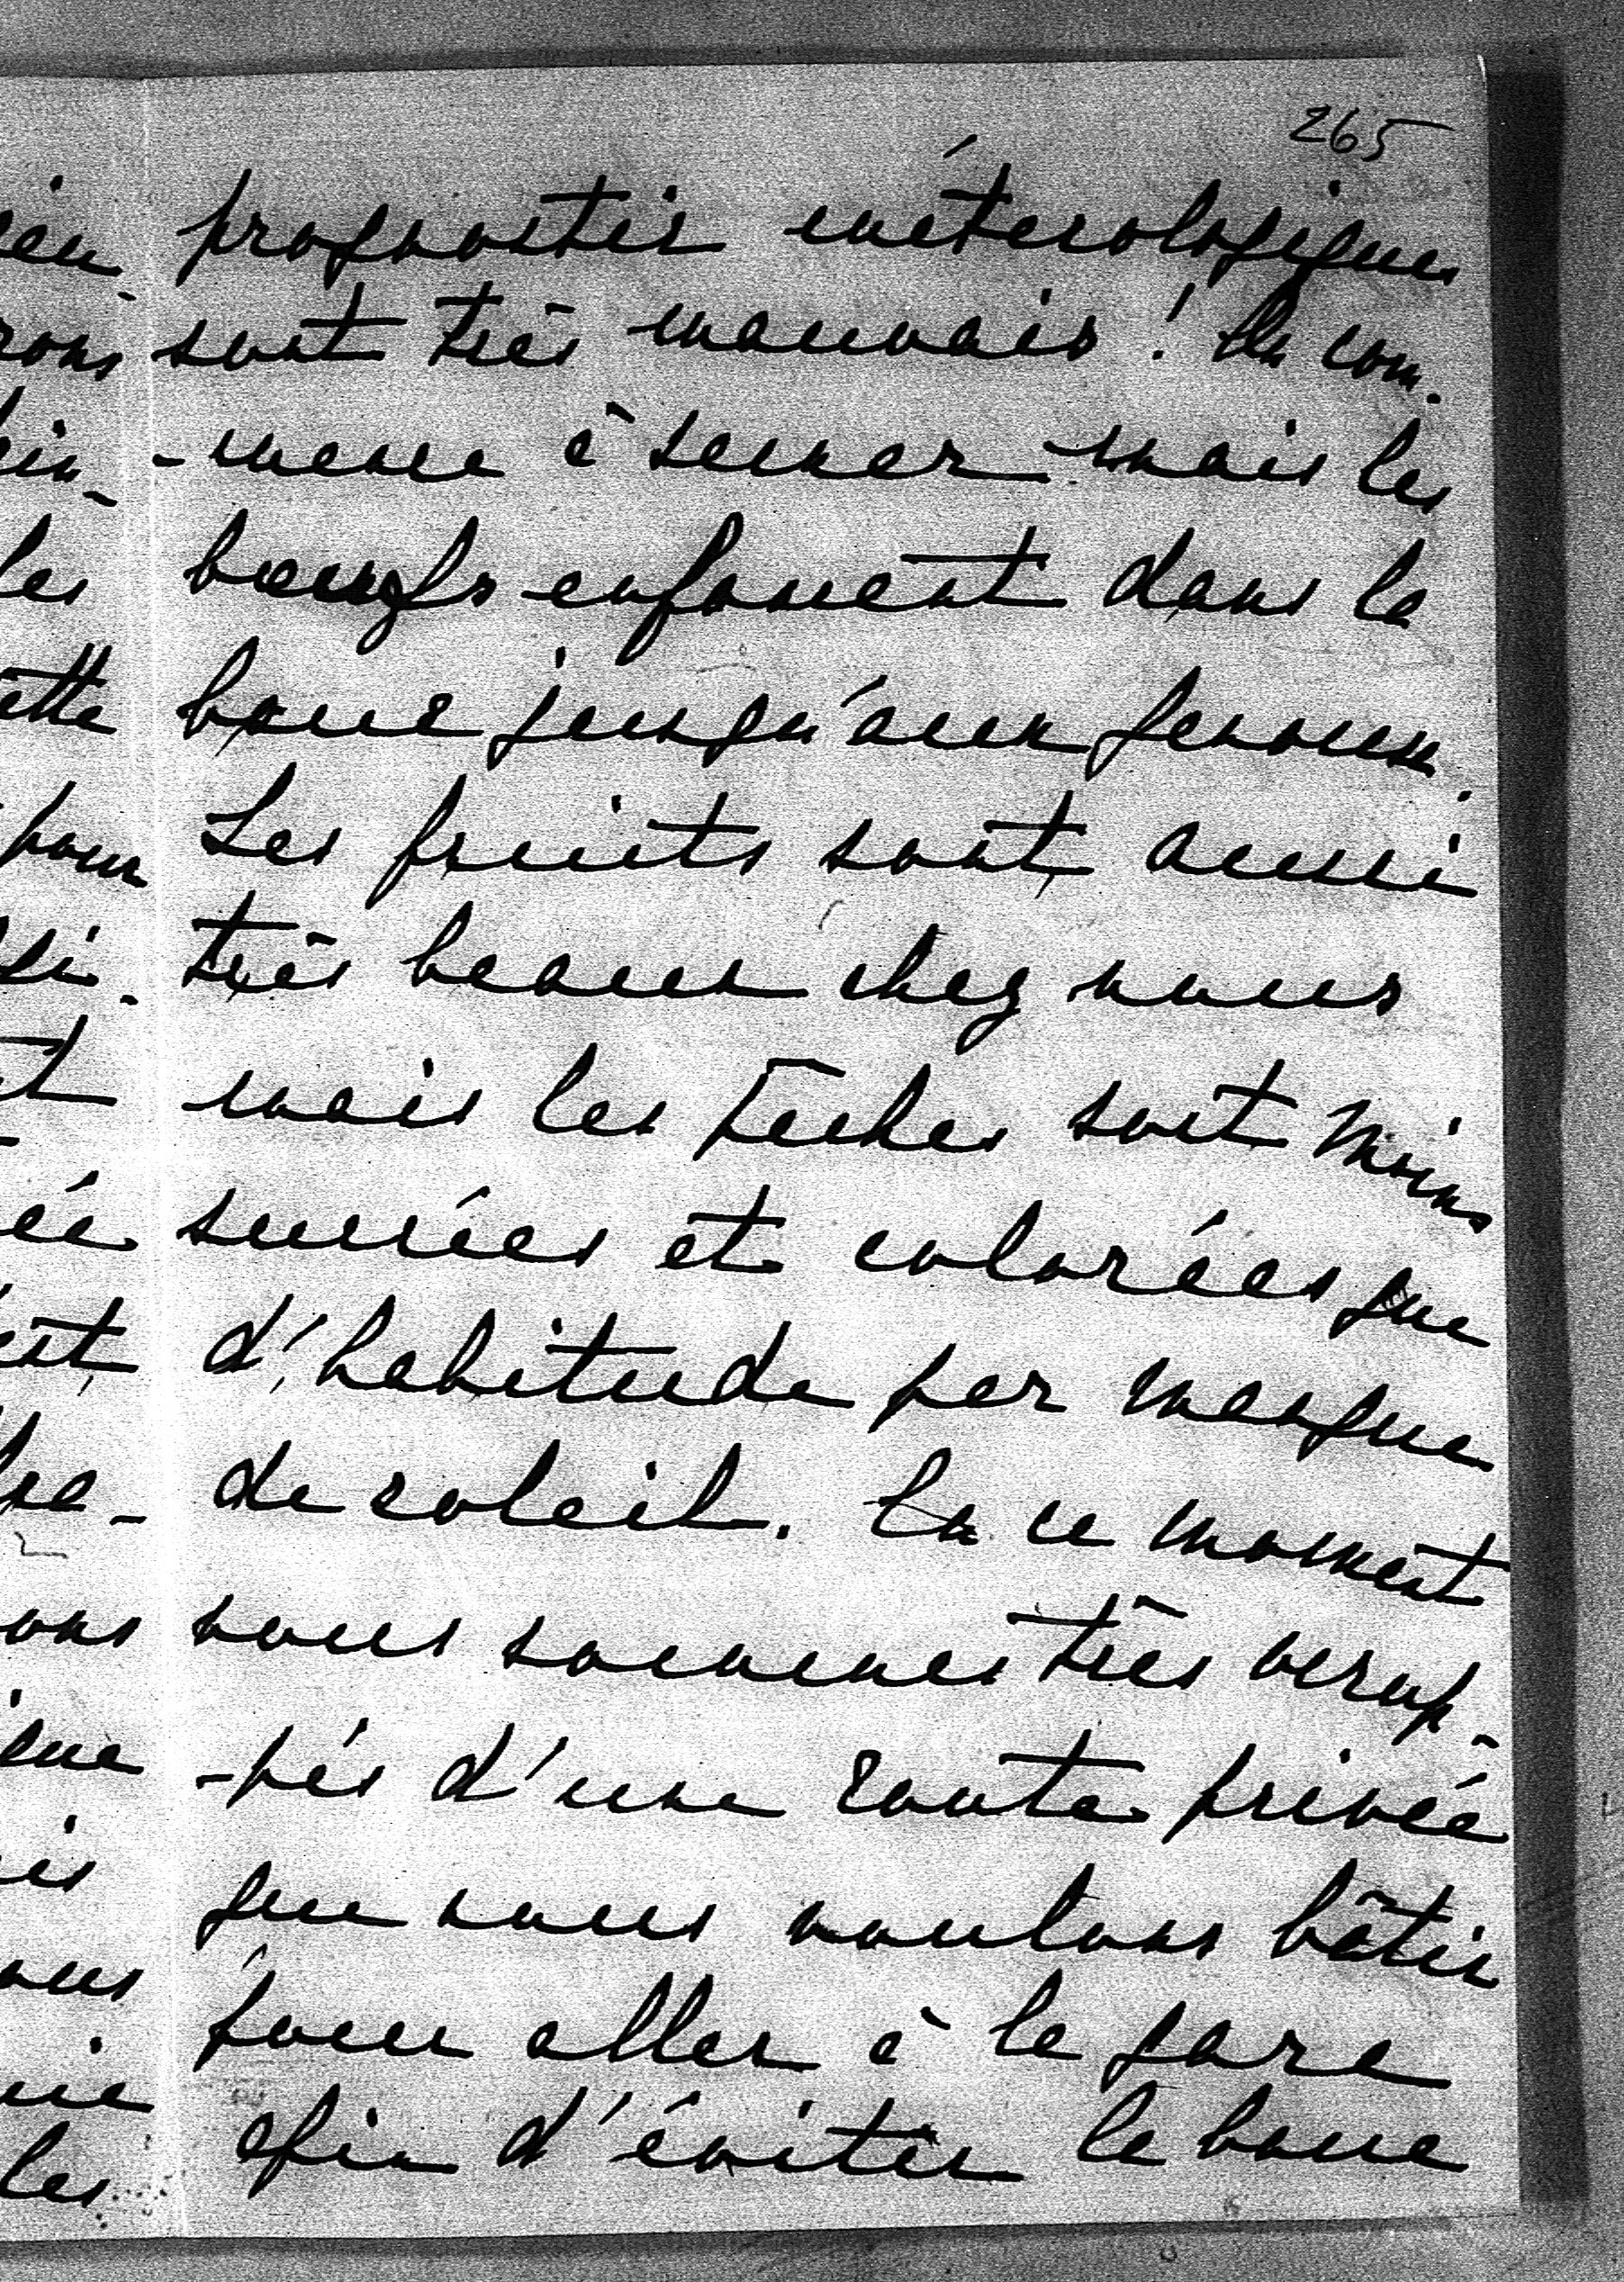 265
prognostics météorologiques
sont très mauvais ! On com-
-mence à semer mais les
boeufs enfoncent dans la
boue jusqu'aux genoux.
Les fruits sont aussi
très beaux chez nous
mais les pêches sont moins
sucrées et colorées que
d'habitude par manque
de soleil. En ce moment
nous sommes très occup-
-pés d'une route privée
que nous voulons bâtir
pour aller à la gare
afin d'éviter la boue